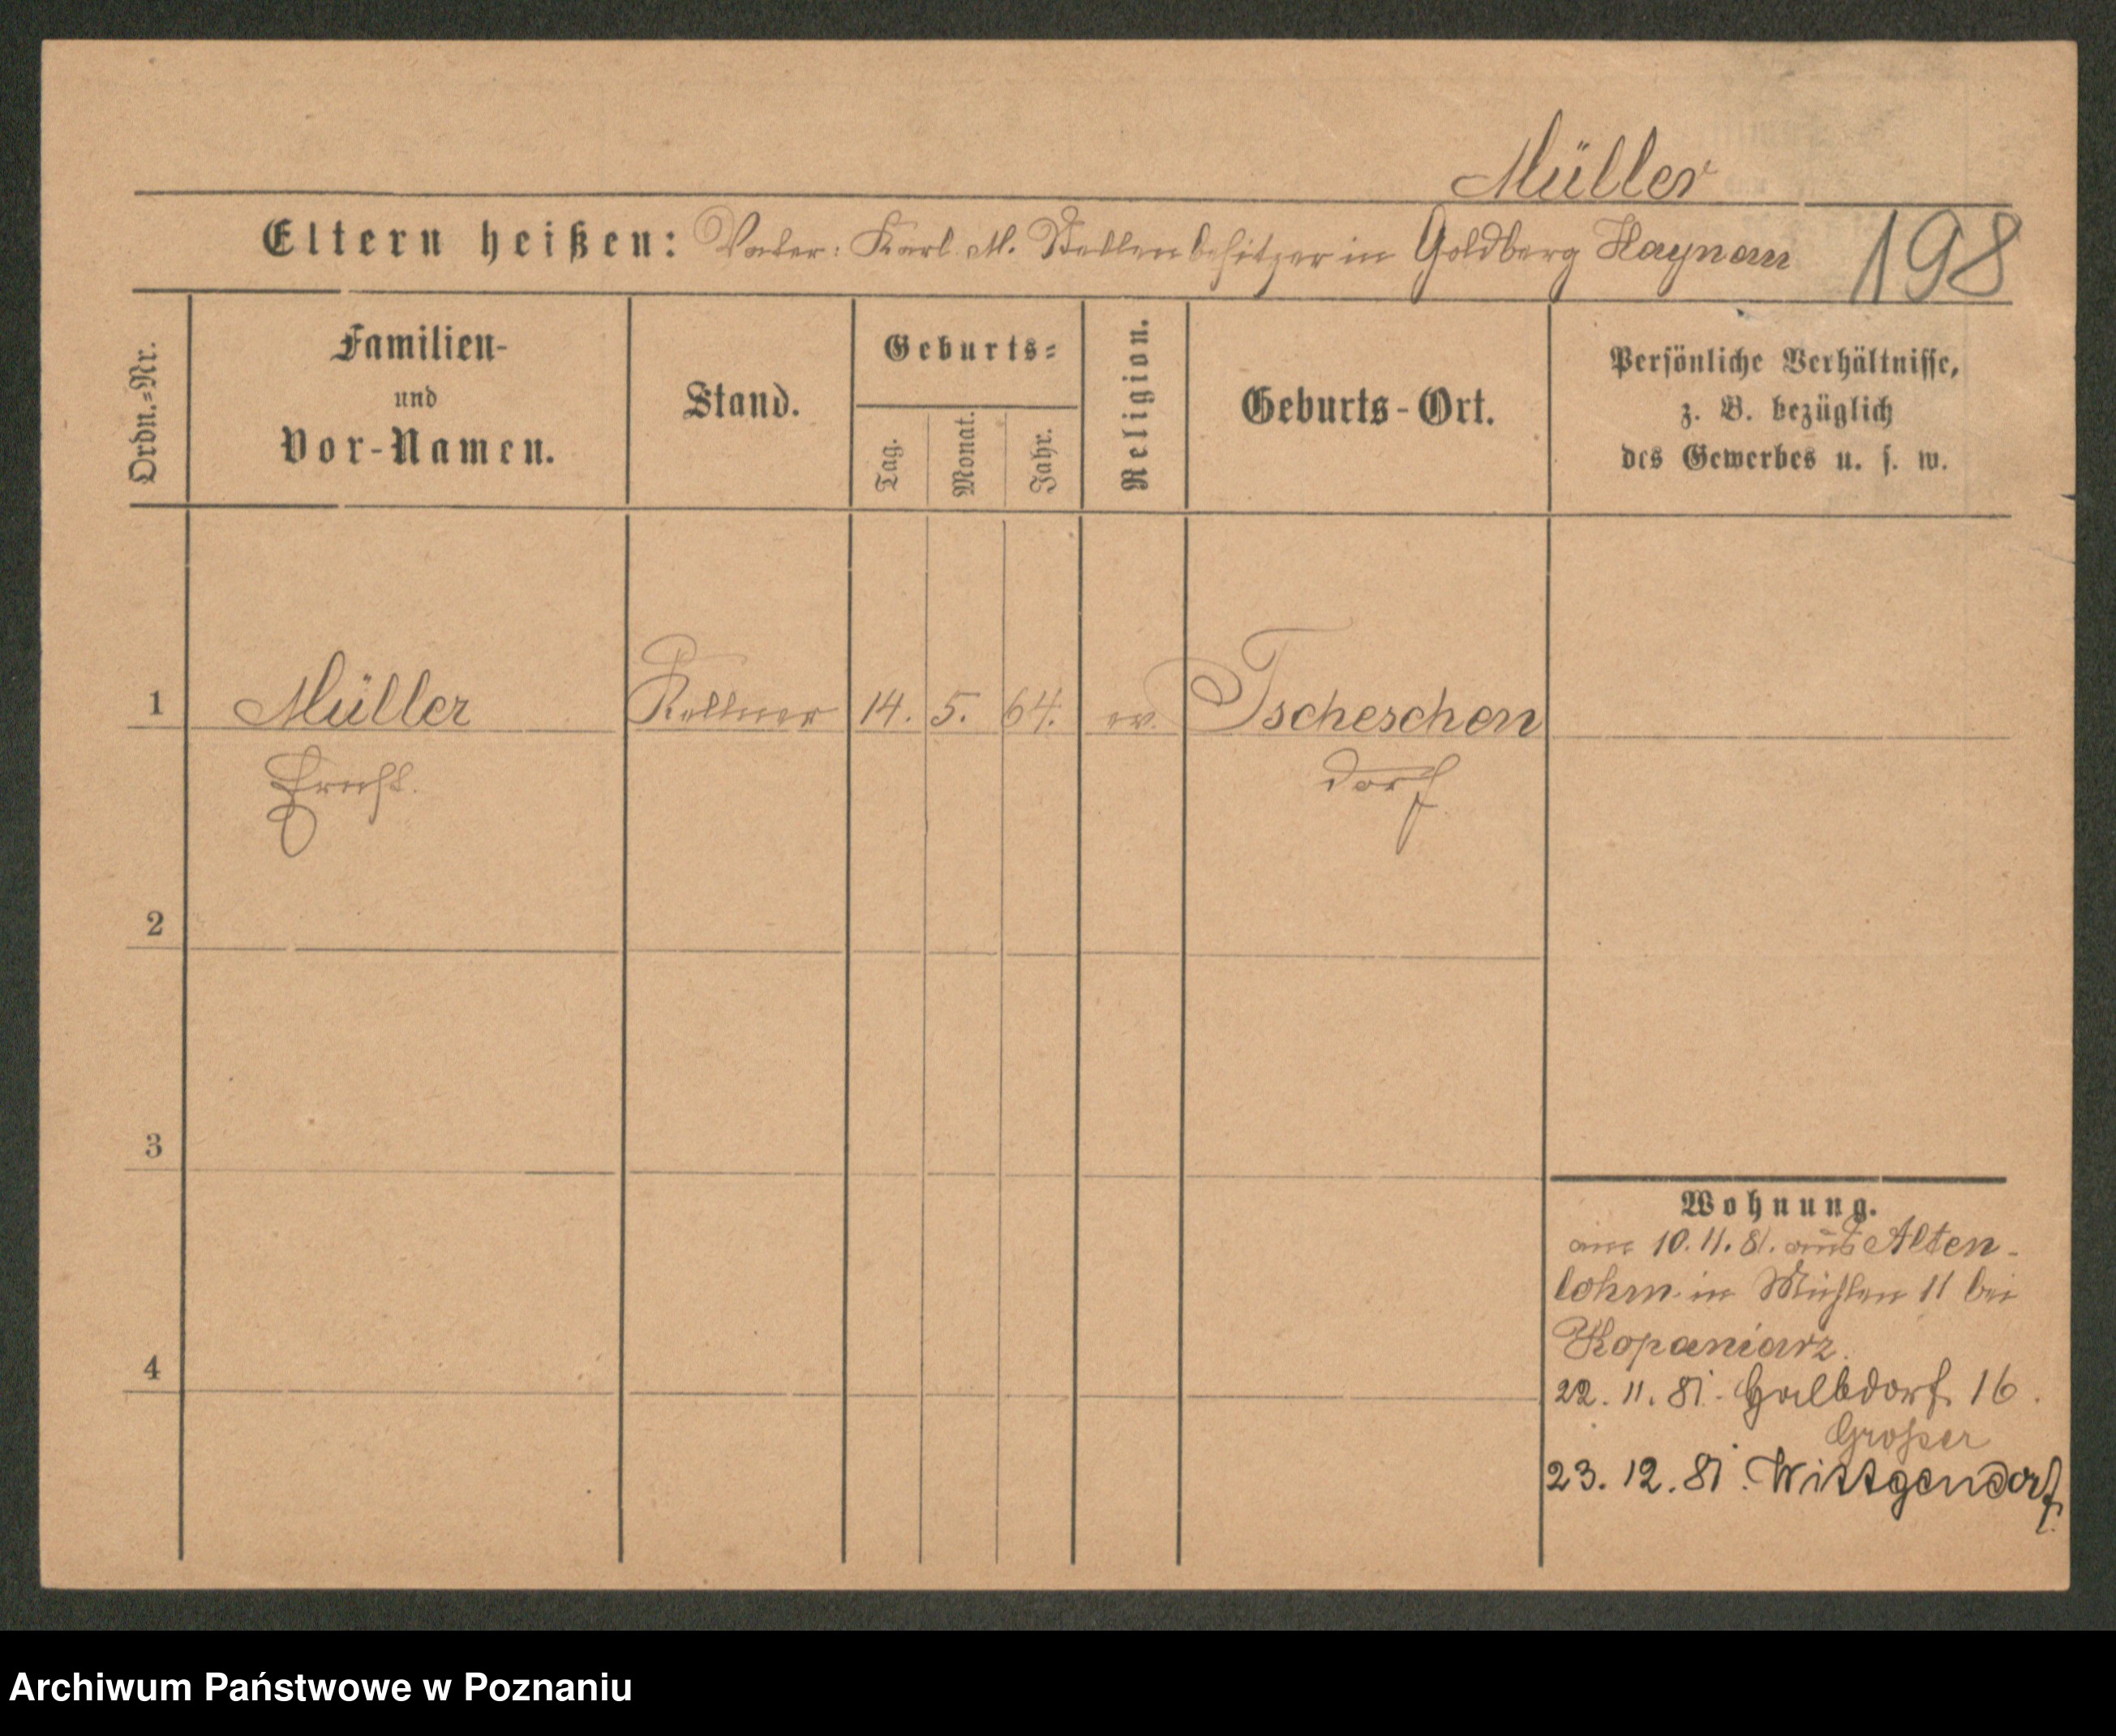 Müller
Eltern heißen: Vater: Karl M. Stellenbesitzer in Goldberg Haynau 198
Ordn.-Nr. Familien- und Vor-Namen. Stand. Geburts- Tag. Monat. Jahr. Religion. Geburts-Ort. Persönliche Verhältnisse, z. B. bezüglich des Gewerbes u. s. w.
1 Müller Kellner 14. 5. 64. ev. Tscheschen
Ernst. dorf
2
3
4
Wohnung.
am 10. 11. 81. aus Alten-
lohm in Mühlen 11 bei
Kopaniarz.
22. 11. 81. Halbdorf. 16.
Großer
23. 12. 81. Wittgendorf.
Archiwum Państwowe w Poznaniu